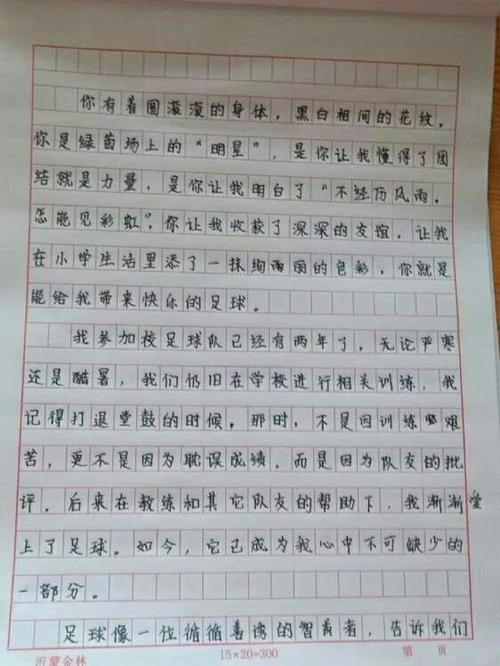 你有着圆滚滚的身体，黑白相间的花纹，
你是绿茵场上的“明星”，是你让我懂得了团
结就是力量，是你让我明白了“不经历风雨，
怎能见彩虹”，你让我收获了深深的友谊，让我
在小学生活里添了一抹绚丽的色彩，你就是
能给我带来快乐的足球。
我参加校足球队已经有两年了，无论严寒
还是酷暑，我们仍旧在学校进行相关训练，我
记得打退堂鼓的时候。那时，不是因训练艰
苦，更不是因为耽误成绩，而是因为队友的批
评。后来在教练和其它队友的帮助下，我渐渐
上了足球。如今，它已成为我心中不可缺少的
一部分。
足球像一位循循善诱的智者，告诉我们
沂蒙金林 15×20=300 第 页